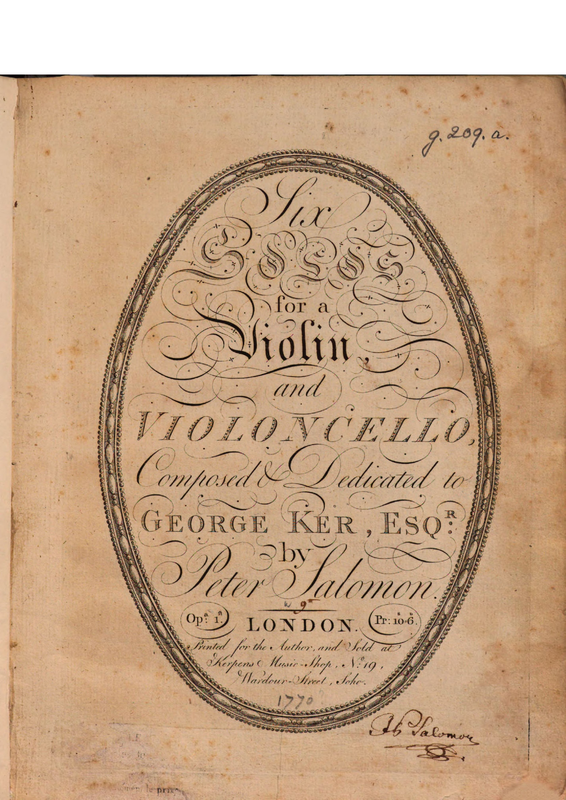 g.209.a.
Six
Solos
for a
Violin,
and
VIOLONCELLO,
Composed & Dedicated to
GEORGE KER, ESQR:
by
Peter Salomon.
Opa: 1a LONDON. Pr: 10s.6d.
Printed for the Author, and Sold at
Kerpens Music-Shop, No. 19,
Wardour-Street, Soho.
1770
Salomon